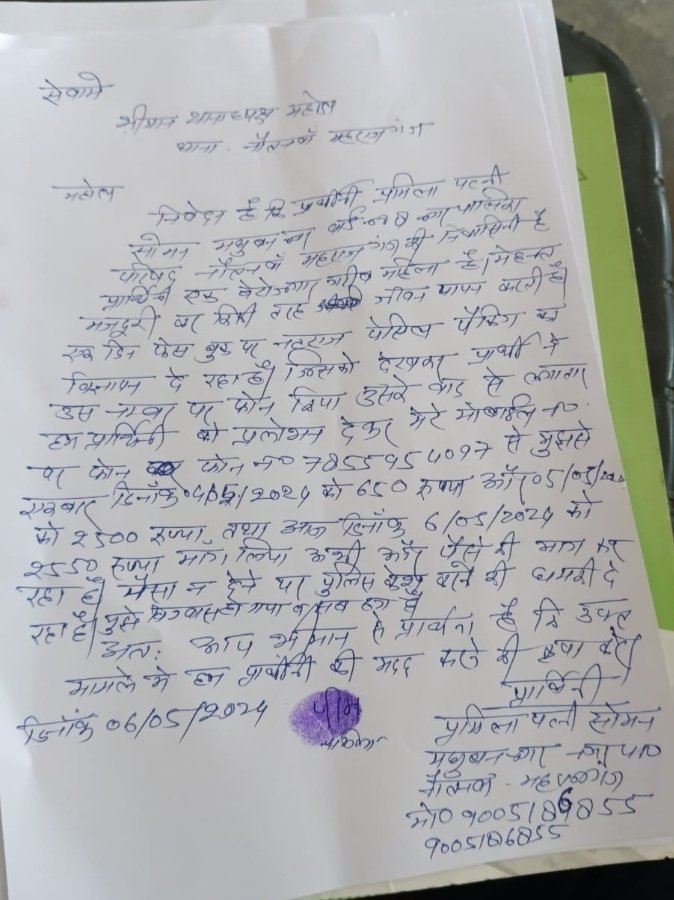 सेवामे
श्रीमान थानाध्यक्ष महोदय
थाना - नौतनवाँ महराजगंज
महोदय
निवेदन है कि प्रार्थीनी प्रमिला पत्नी
सोमन मधुबन नगर वार्ड न० नगर पालिका
परिषद नौतनवाँ महराजगंज की निवासिनी है
प्रार्थिनी एक बेरोजगार गरीब महिला है। मेहनत
मजदूरी कर किसी तरह जीवन यापन करती है।
एक दिन फेस बुक पर नटराज पेंसिल पैकिंग का
विज्ञापन दे रहा है। जिसको देखकर प्रार्थी ने
उस नम्बर पर फोन किया उसके बाद से लगातार
हम प्रार्थिनी को प्रलोभन देकर मेरे मोबाईल न०
पर फोन फोन न० 7855954097 से मुझसे
एकबार दिनाँक 04/05/2024 को 650 रूपया और 05/05/2024
को 2500 रूपया, तथा आज दिनाँक 6/05/2024 को
2550 रूपया मांग लिया अभी और पैसे की मांग कर
रहा है। पैसा न देने पर पुलिस केश करने की धमकी दे
रहा है। मुझे गया सब ठग है
अतः आप श्रीमान से प्रार्थना है कि उक्त
मामले मे हम प्रार्थीनी की मदद करने की कृपा करें।
प्रार्थिनी
दिनाँक 06/05/2024
प्रमिला पत्नी सोमन
मधुबन नगर न०पा०
नौतनवाँ - महराजगंज
मो० 9005186855
9005186855